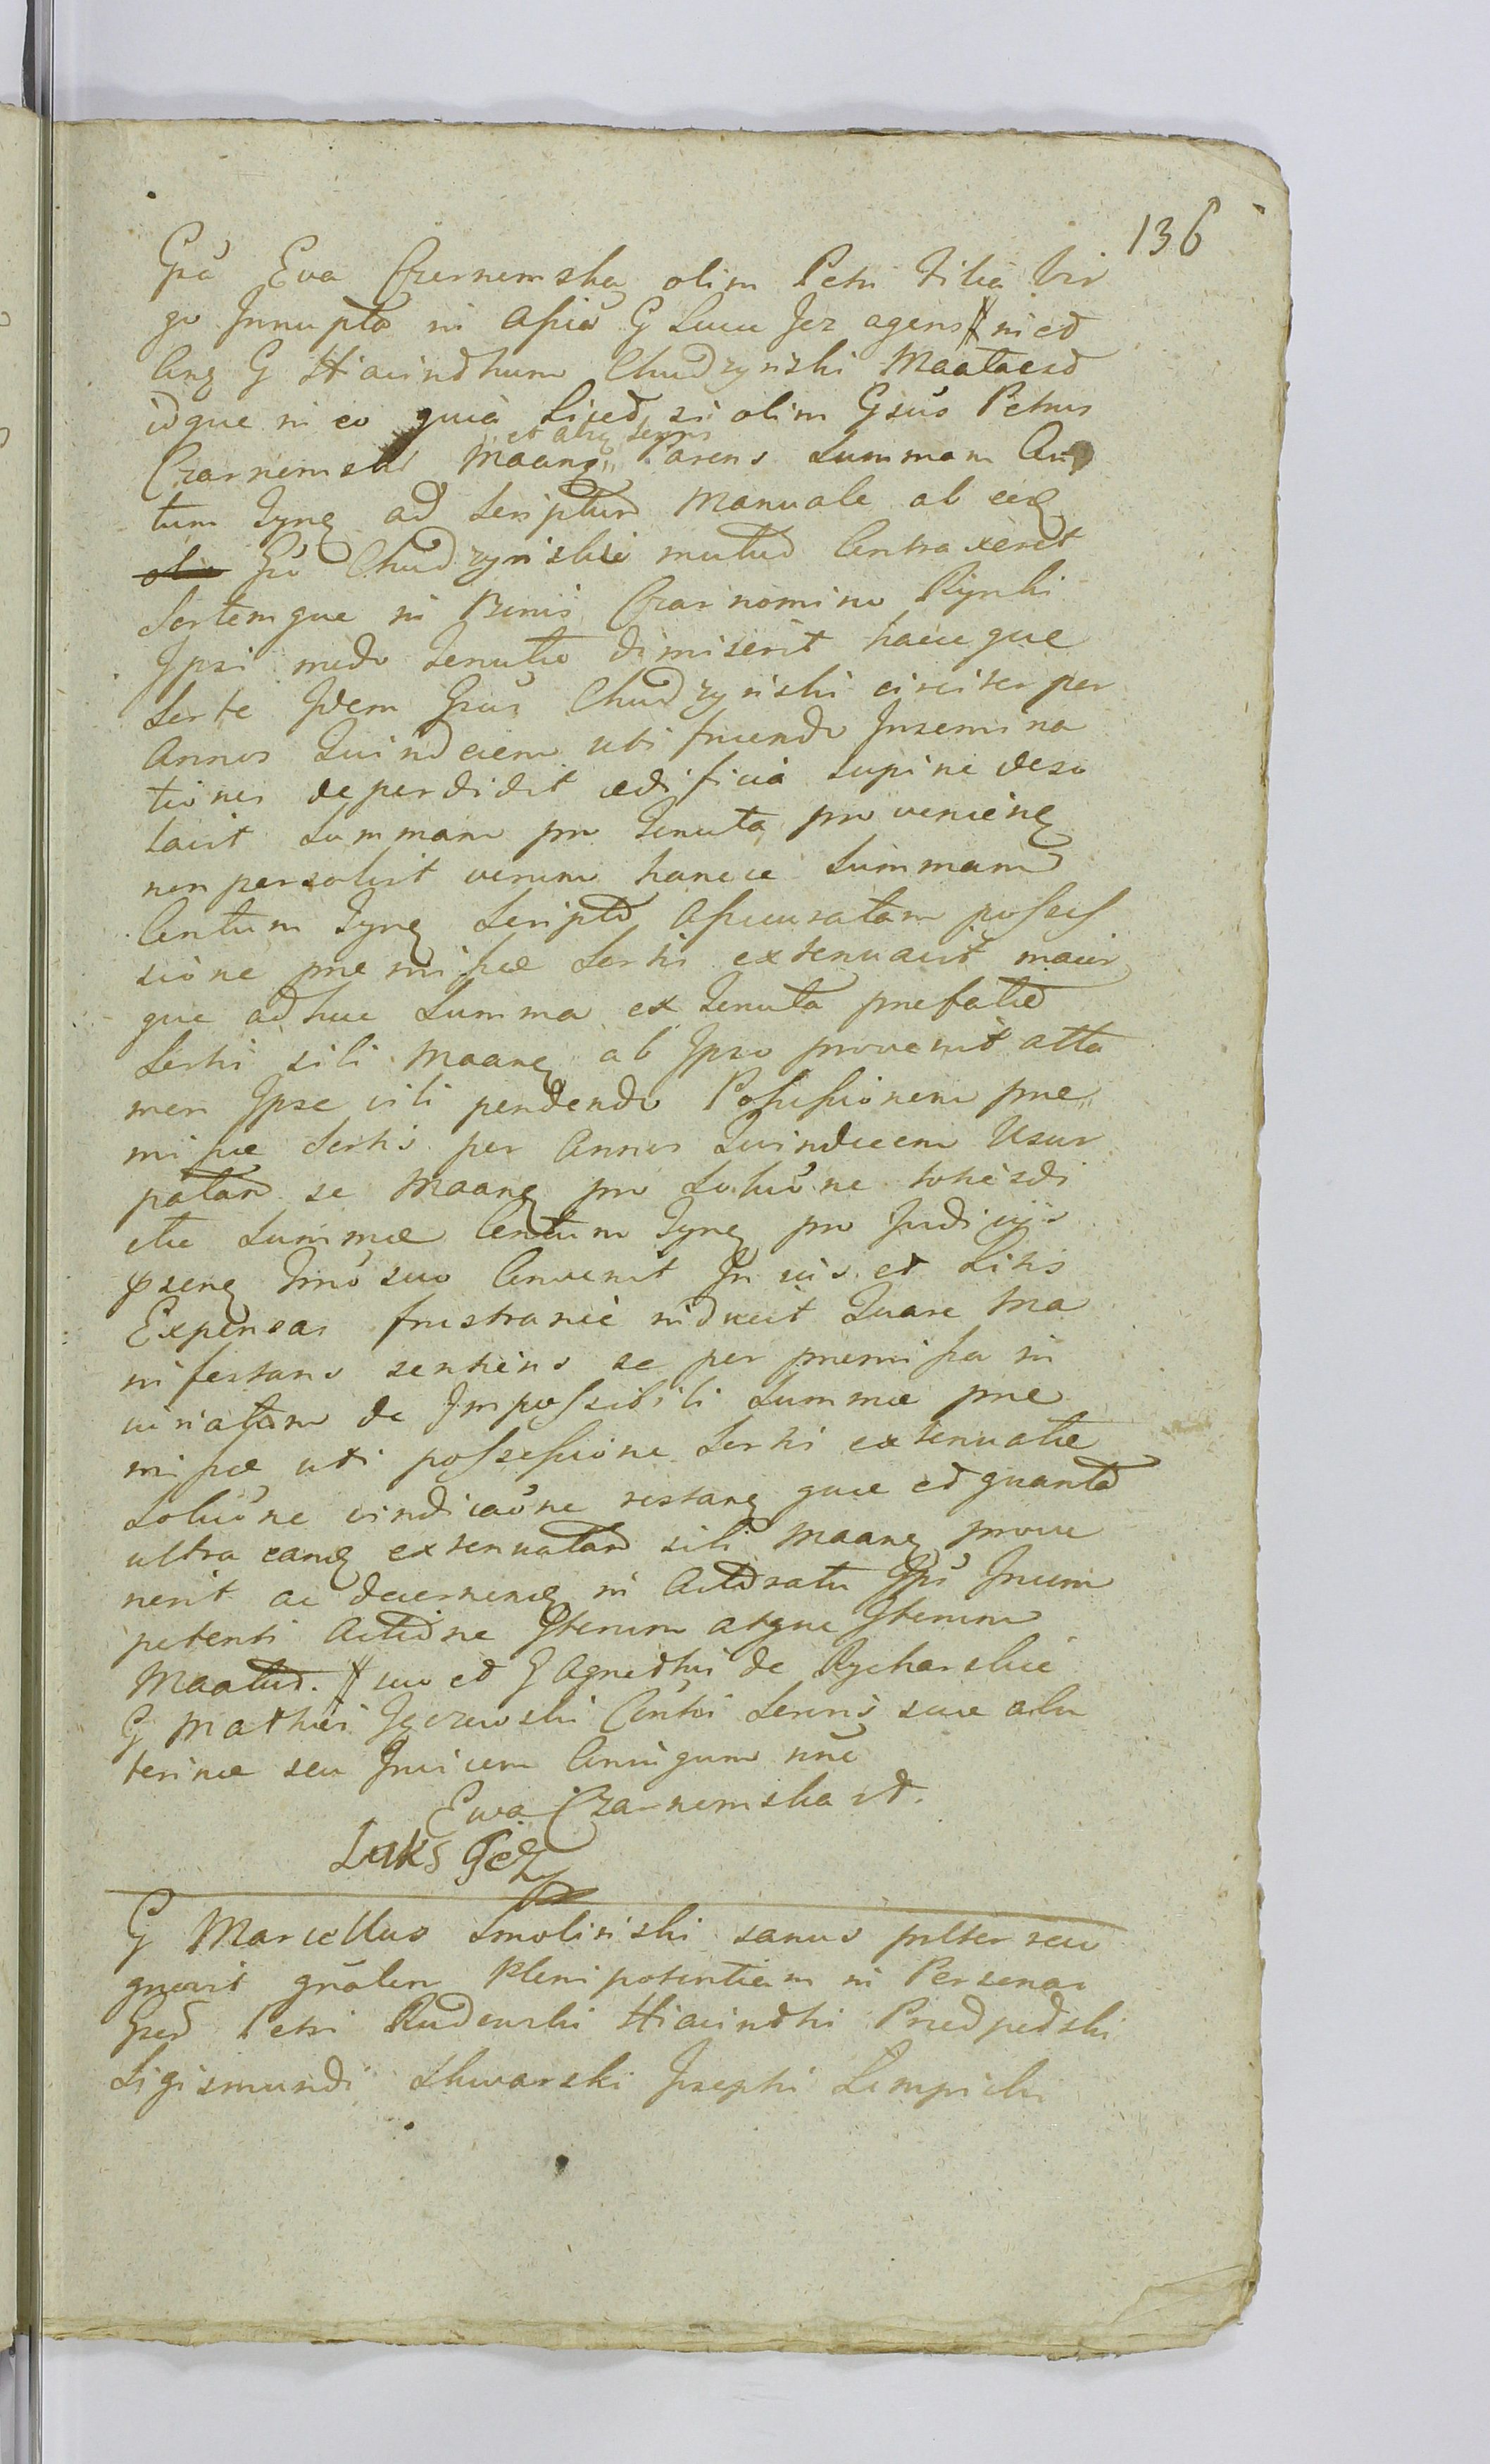 136
Gsa Eva Czernemska olim Petri Filia Vir
go Innupta in Assia G Lucæ Jez agens # in et
Cnq G Hiacinthum Chudzynski Maataest
idque in eo quia Licet, si olim Gsus Petrus
et aliq serris
Czarnemski Maanq" Parens Summam Cen
tum Tynq ad Scriptum Manuale ab eod
Gso Chudzynskie mutuo Contraxerit
Sortemque in Bonis Czarnomino Rynki
Ipsi medio Tenutæ dimiserit hacque
Sorte Idem Gsus Chudzynski circiter per
Annos Quindecim uti fruendo Insemina
tiones deperdidit ædificia supine deso
lavit Summam pro Tenuta provenienq
non persolvit verum hancce Summam
Centum Tynq Scripto Assicuratam posses
sione præmissæ Sortis extenuavit maior
que adhuc Summa ex Tenuta præfatæ
Sortis sibi Maanq ab Ipso provenit atta
men Ipse vili pendendo Possessionem præ"
missæ Sortis per Annos Quindecem Usur
patam se Maanq pro Soluone totiesdi
ctæ Summæ Centum Tynq pro Judicys
psenq Tmo suo Convenit In vis et Litis
Expensas frustranie induxit Quare Ma
nifestans sentiens se per præmissa in
iuriatam de Impossibili Summæ præ
missæ uti possessione Sortis extenuatæ
Soluone vindicaone restanq quæ et quanta
ultra eanq extenuatam sibi Maanq prove
nerit ac decernenq in Attdratu Ipsi Incom
petenti Actione Iterum atque Iterum
Maatur. # suo et G Agnethis de Rycharskie
G Mathiæ Jezewski Consortis Sororis suæ alu
terinæ seu Invicem Coniugum nne
Ewa Czarnemska st.
Luks Jez
G Marcellus Smolinski sanus palter reco
gnovit gnalem Plenipotentiam in Personas
Gsed Petri Rudowski Hiacinthi Przedpełski
Sigismundi Skwarski Josephi Lempicki